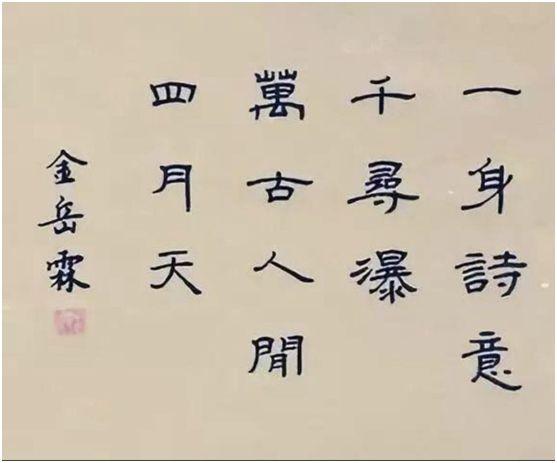 一身詩意
千尋瀑
萬古人閒
四月天
金岳霖